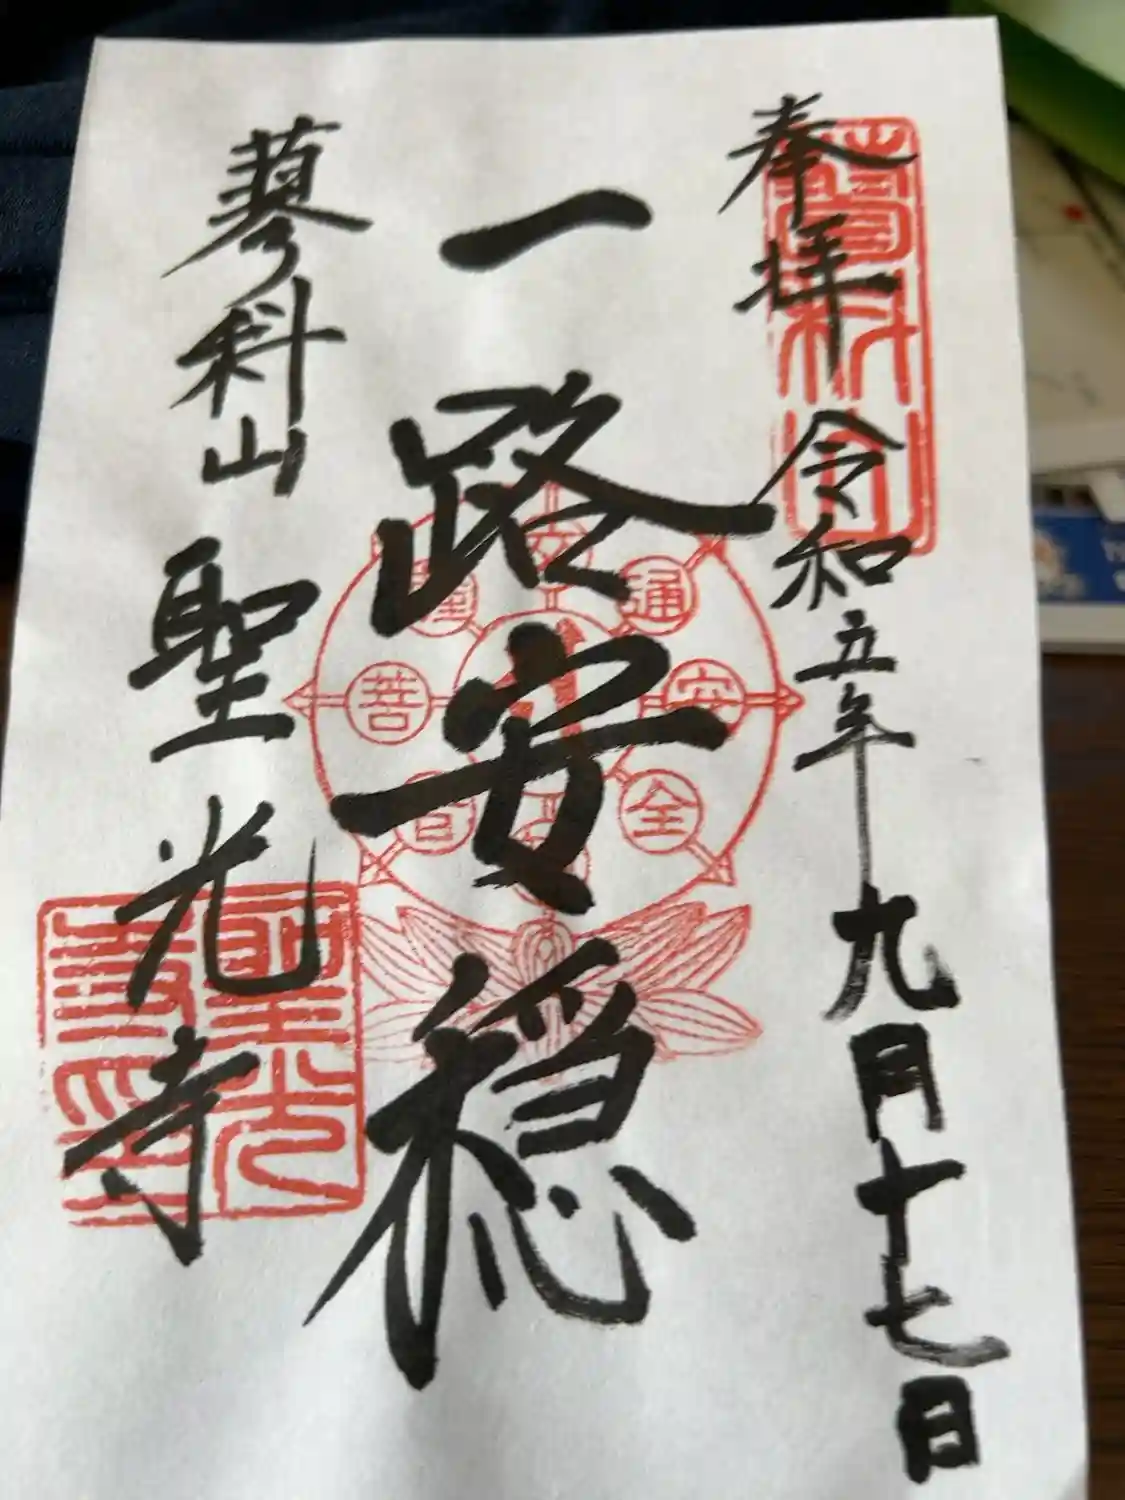 奉拝
令和五年九月十七日
一路安穏
蓼科山
聖光寺
蓼科山
交
通
安
全
菩
薩
聖光
寺印